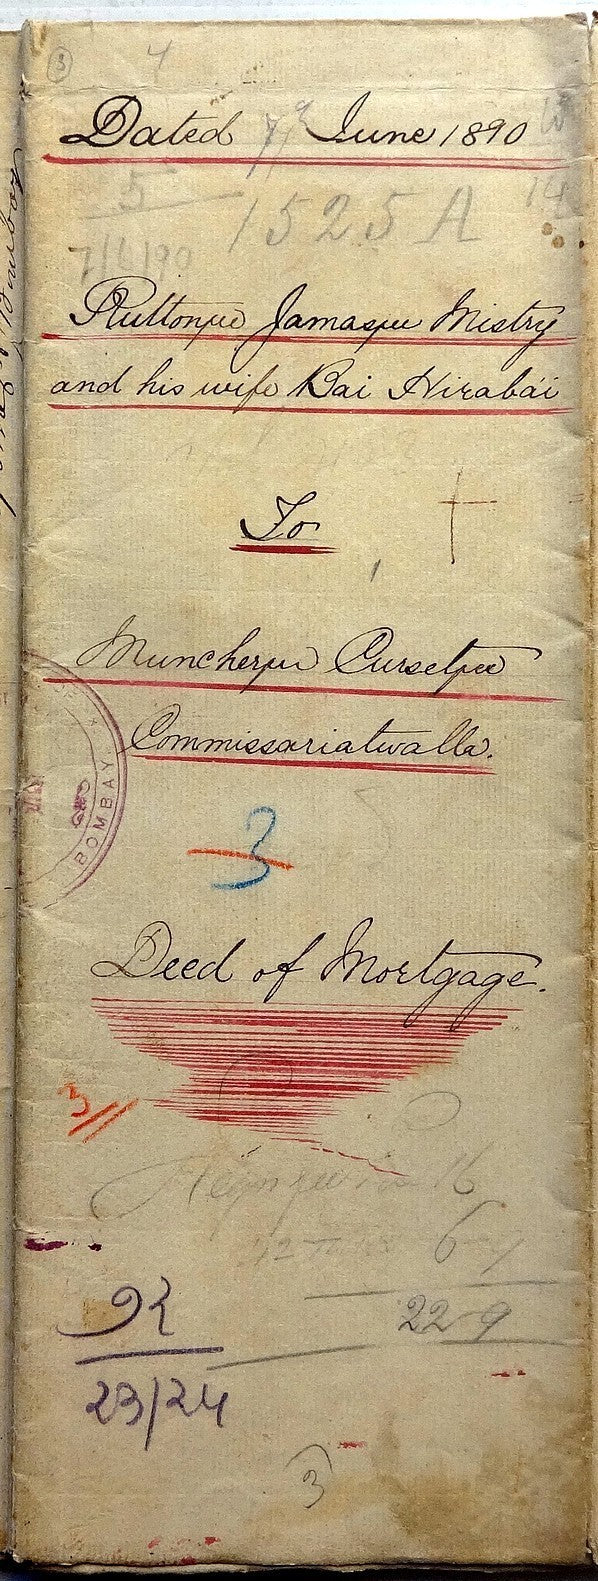 3
4
Dated 7th June 1890
5
1525 A
14
7/6/90
Ruttonjee Jamasjee Mistry
and his wife Bai Hirabái
To
Muncherjee Cursetjee
BOMBAY
Commissariatwalla.
3
Deed of Mortgage.
3
16
67
229
92
23/24
3